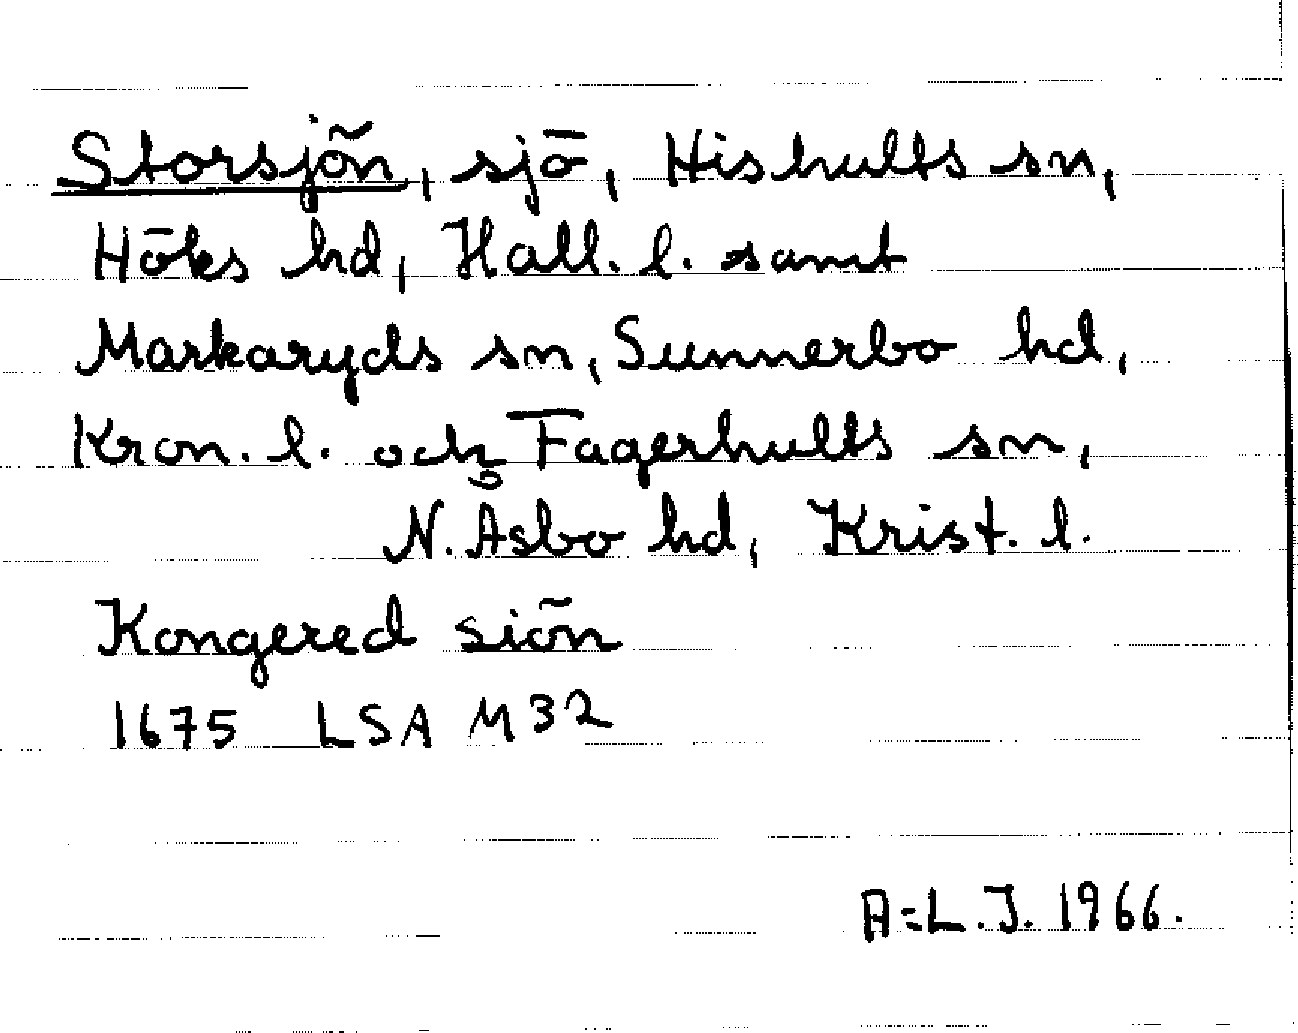 Storsjön, sjö, Hishults sn,
Höks hd, Hall. l. samt
Markaryds sn, Sunnerbo hd,
Kron. l. och Fagerhults sn,
N. Åsbo hd, Krist. l.
Kongered siön
1675 LSA M32
A=L.J. 1966.